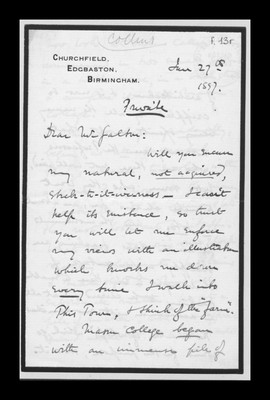 Collins
f. 13r
CHURCHFIELD,
EDGBASTON,
BIRMINGHAM.
Jan 27th
1897.
Private
Dear Mr Galton:
Will you excuse
my natural, not acquired,
stick-to-it-iveness – I can't
help its existence, so trust
you will let me enforce
my views with an illustration
which knocks me down
every time I walk into
this Town, & think of the "farm".
Mason College began
with an immense pile of